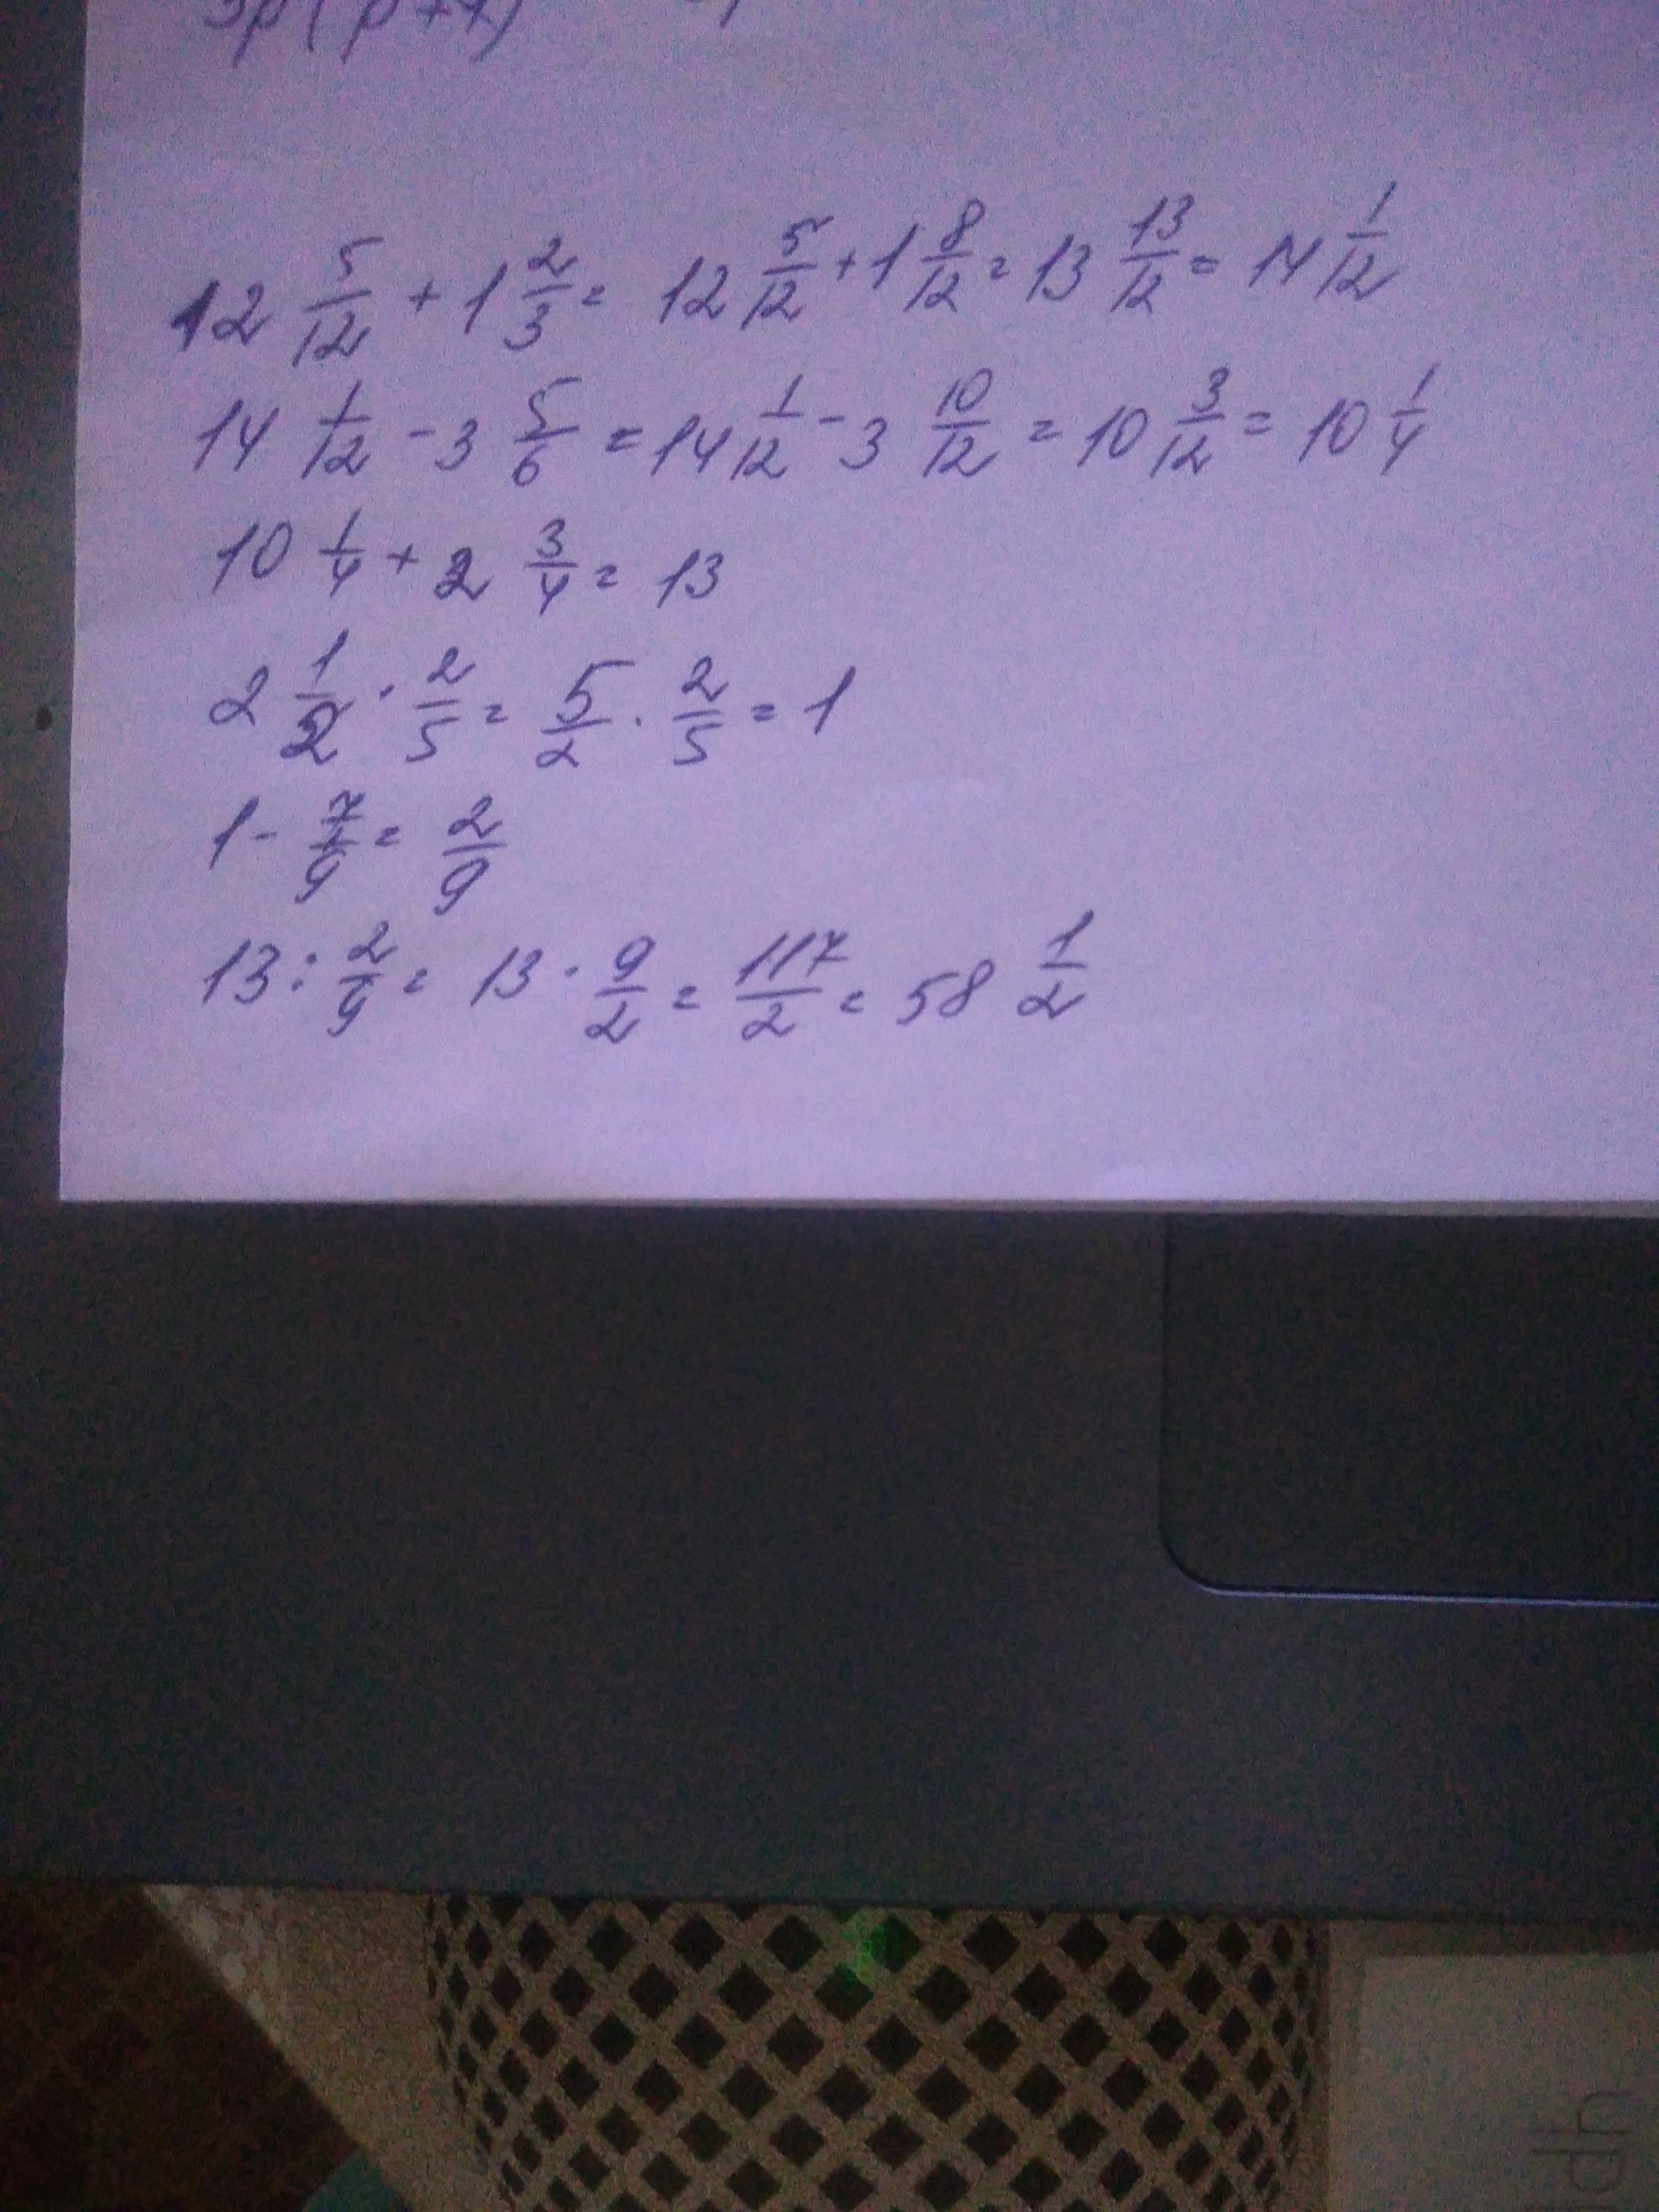 12 5/12 + 1 2/3 = 12 5/12 + 1 8/12 = 13 13/12 = 14 1/12
14 1/12 - 3 5/6 = 14 1/12 - 3 10/12 = 10 3/12 = 10 1/4
10 1/4 + 2 3/4 = 13
2 1/2 · 2/5 = 5/2 · 2/5 = 1
1 - 7/9 = 2/9
13 : 2/9 = 13 · 9/2 = 117/2 = 58 1/2